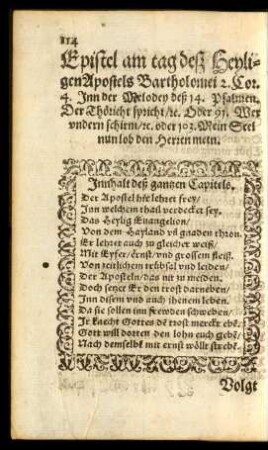 114
Epistel am tag deß Heyli-
gen Apostels Bartholomei 2. Cor.
4. Inn der Melodey deß 14. Psalmen.
Der Thöricht spricht/ꝛc. Oder 91. Wer
vndern schirm/ꝛc. oder 103. Mein Seel
nun lob den Herren mein.
Innhalt deß gantzen Capitels.
Der Apostel hie lehret frey/
Inn welchem thail verdecket sey.
Das Heylig Euangelion/
Von dem Hayland vñ gnaden thron.
Er lehret auch zu gleicher weiß/
Mit Eyfer/ ernst/ vnd grossem fleiß.
Von zeitlichem trübsal vnd leiden/
Der Aposteln/ das nit zu meiden.
Doch setzet Er den trost darneben/
Inn disem vnd auch ihenem leben.
Da sie sollen inn frewden schweben/
Ir knecht Gottes dē trost merckt ebē/
Gott will dorten den lohn euch gebē/
Nach demselbē mit ernst wöllt strebē.
Volgt